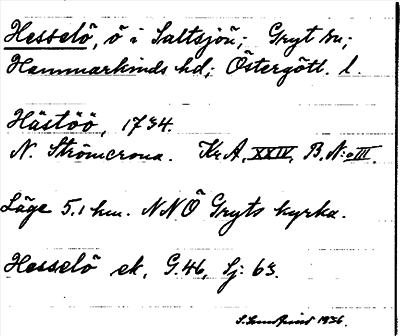 Hesselö, ö i Saltsjön; Gryt sn;
Hammarkinds hd; Östergötl. l.
Hästöö, 1734.
N. Strömcrona. Kr.A, XXIV, B, N:o III.
Läge 5,1 km. NNÖ Gryts kyrka.
Hesselö ek, G.46, Sj: 63.
1936